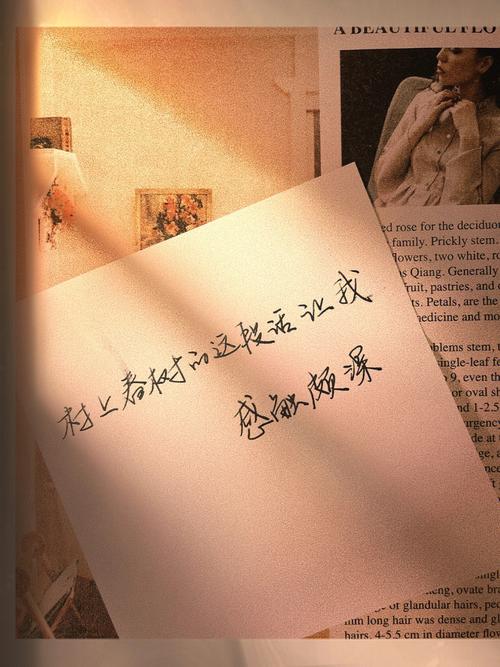 A BEAUTIFUL FLO
村上春树的这段话让我
感触颇深
ed rose for the deciduou
family. Prickly stem.
lowers, two white, ro
s Qiang. Generally
ruit, pastries, and
ts. Petals, are the
edicine and mo
blems stem, t
ingle-leaf fe
9, even th
or oval sh
nd 1-2.5
urgency
de at
ge, a
eng, ovate bra
or glandular hairs, ped
mm long hair was dense and gl
hairs, 4-5.5 cm in diameter flow